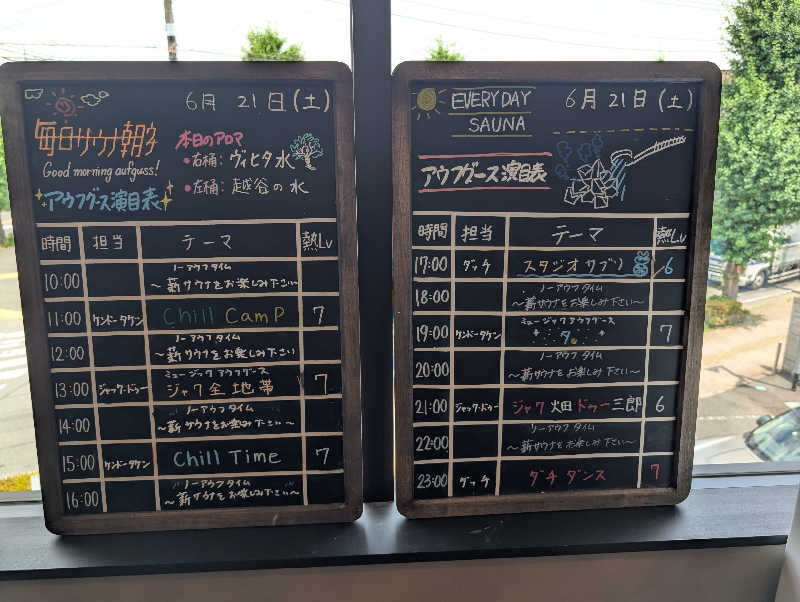 6月 21日(土)
毎日サウナ朝多
Good morning aufguss!
アウフグース演目表
本日のアロマ
・右桶: ヴィヒタ水
・左桶: 越谷の水
時間 担当 テーマ 熱Lv
10:00 ノーアウフタイム
〜薪サウナをお楽しみ下さい〜
11:00 ケンドータケン Chill CamP 7
12:00 ノーアウフタイム
〜薪サウナをお楽しみ下さい
13:00 ジャック・ドゥー ミュージックアウフグース
ジャク全地帯 7
14:00 ノーアウフタイム
〜薪サウナをお楽しみ下さい〜
15:00 ケンドータケン Chill Time 7
16:00 ノーアウフタイム
〜薪サウナをお楽しみ下さい〜
EVERYDAY
SAUNA
6月 21日(土)
アウフグース演目表
時間 担当 テーマ 熱Lv
17:00 ダッチ スタジオサブリ 6
18:00 ノーアウフタイム
〜薪サウナをお楽しみ下さい〜
19:00 ケンドータケン ミュージックアウフグース
夕。 7
20:00 ノーアウフタイム
〜薪サウナをお楽しみ下さい〜
21:00 ジャック・ドゥー ジャク畑ドゥー三郎 6
22:00 ノーアウフタイム
〜薪サウナをお楽しみ下さい〜
23:00 ダッチ ダチダンス 7